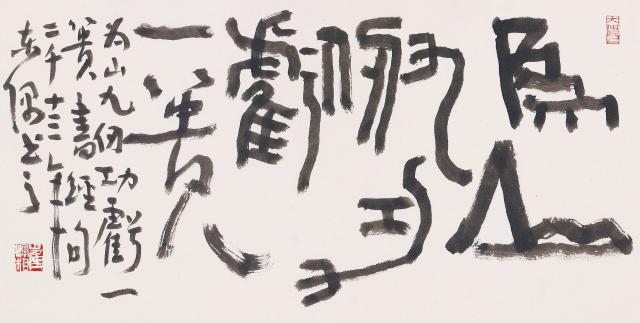 為山
九仞功
虧
一簣
为山九仞功虧一
簣書經句
二千十三年